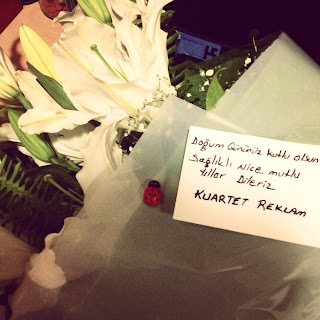 Doğum Gününüz kutlu olsun
Sağlıklı Nice mutlu
Yıllar Dileriz
KUARTET REKLAM